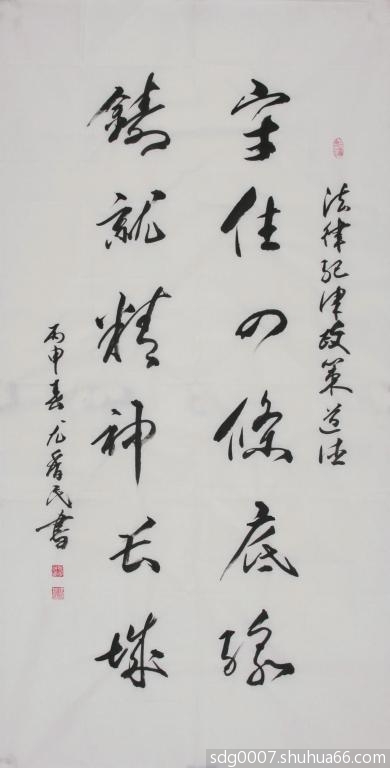 法律紀律政策道德
守住四條底線
鑄就精神長城
丙申春尤香民書
sdg0007.shuhua66.com